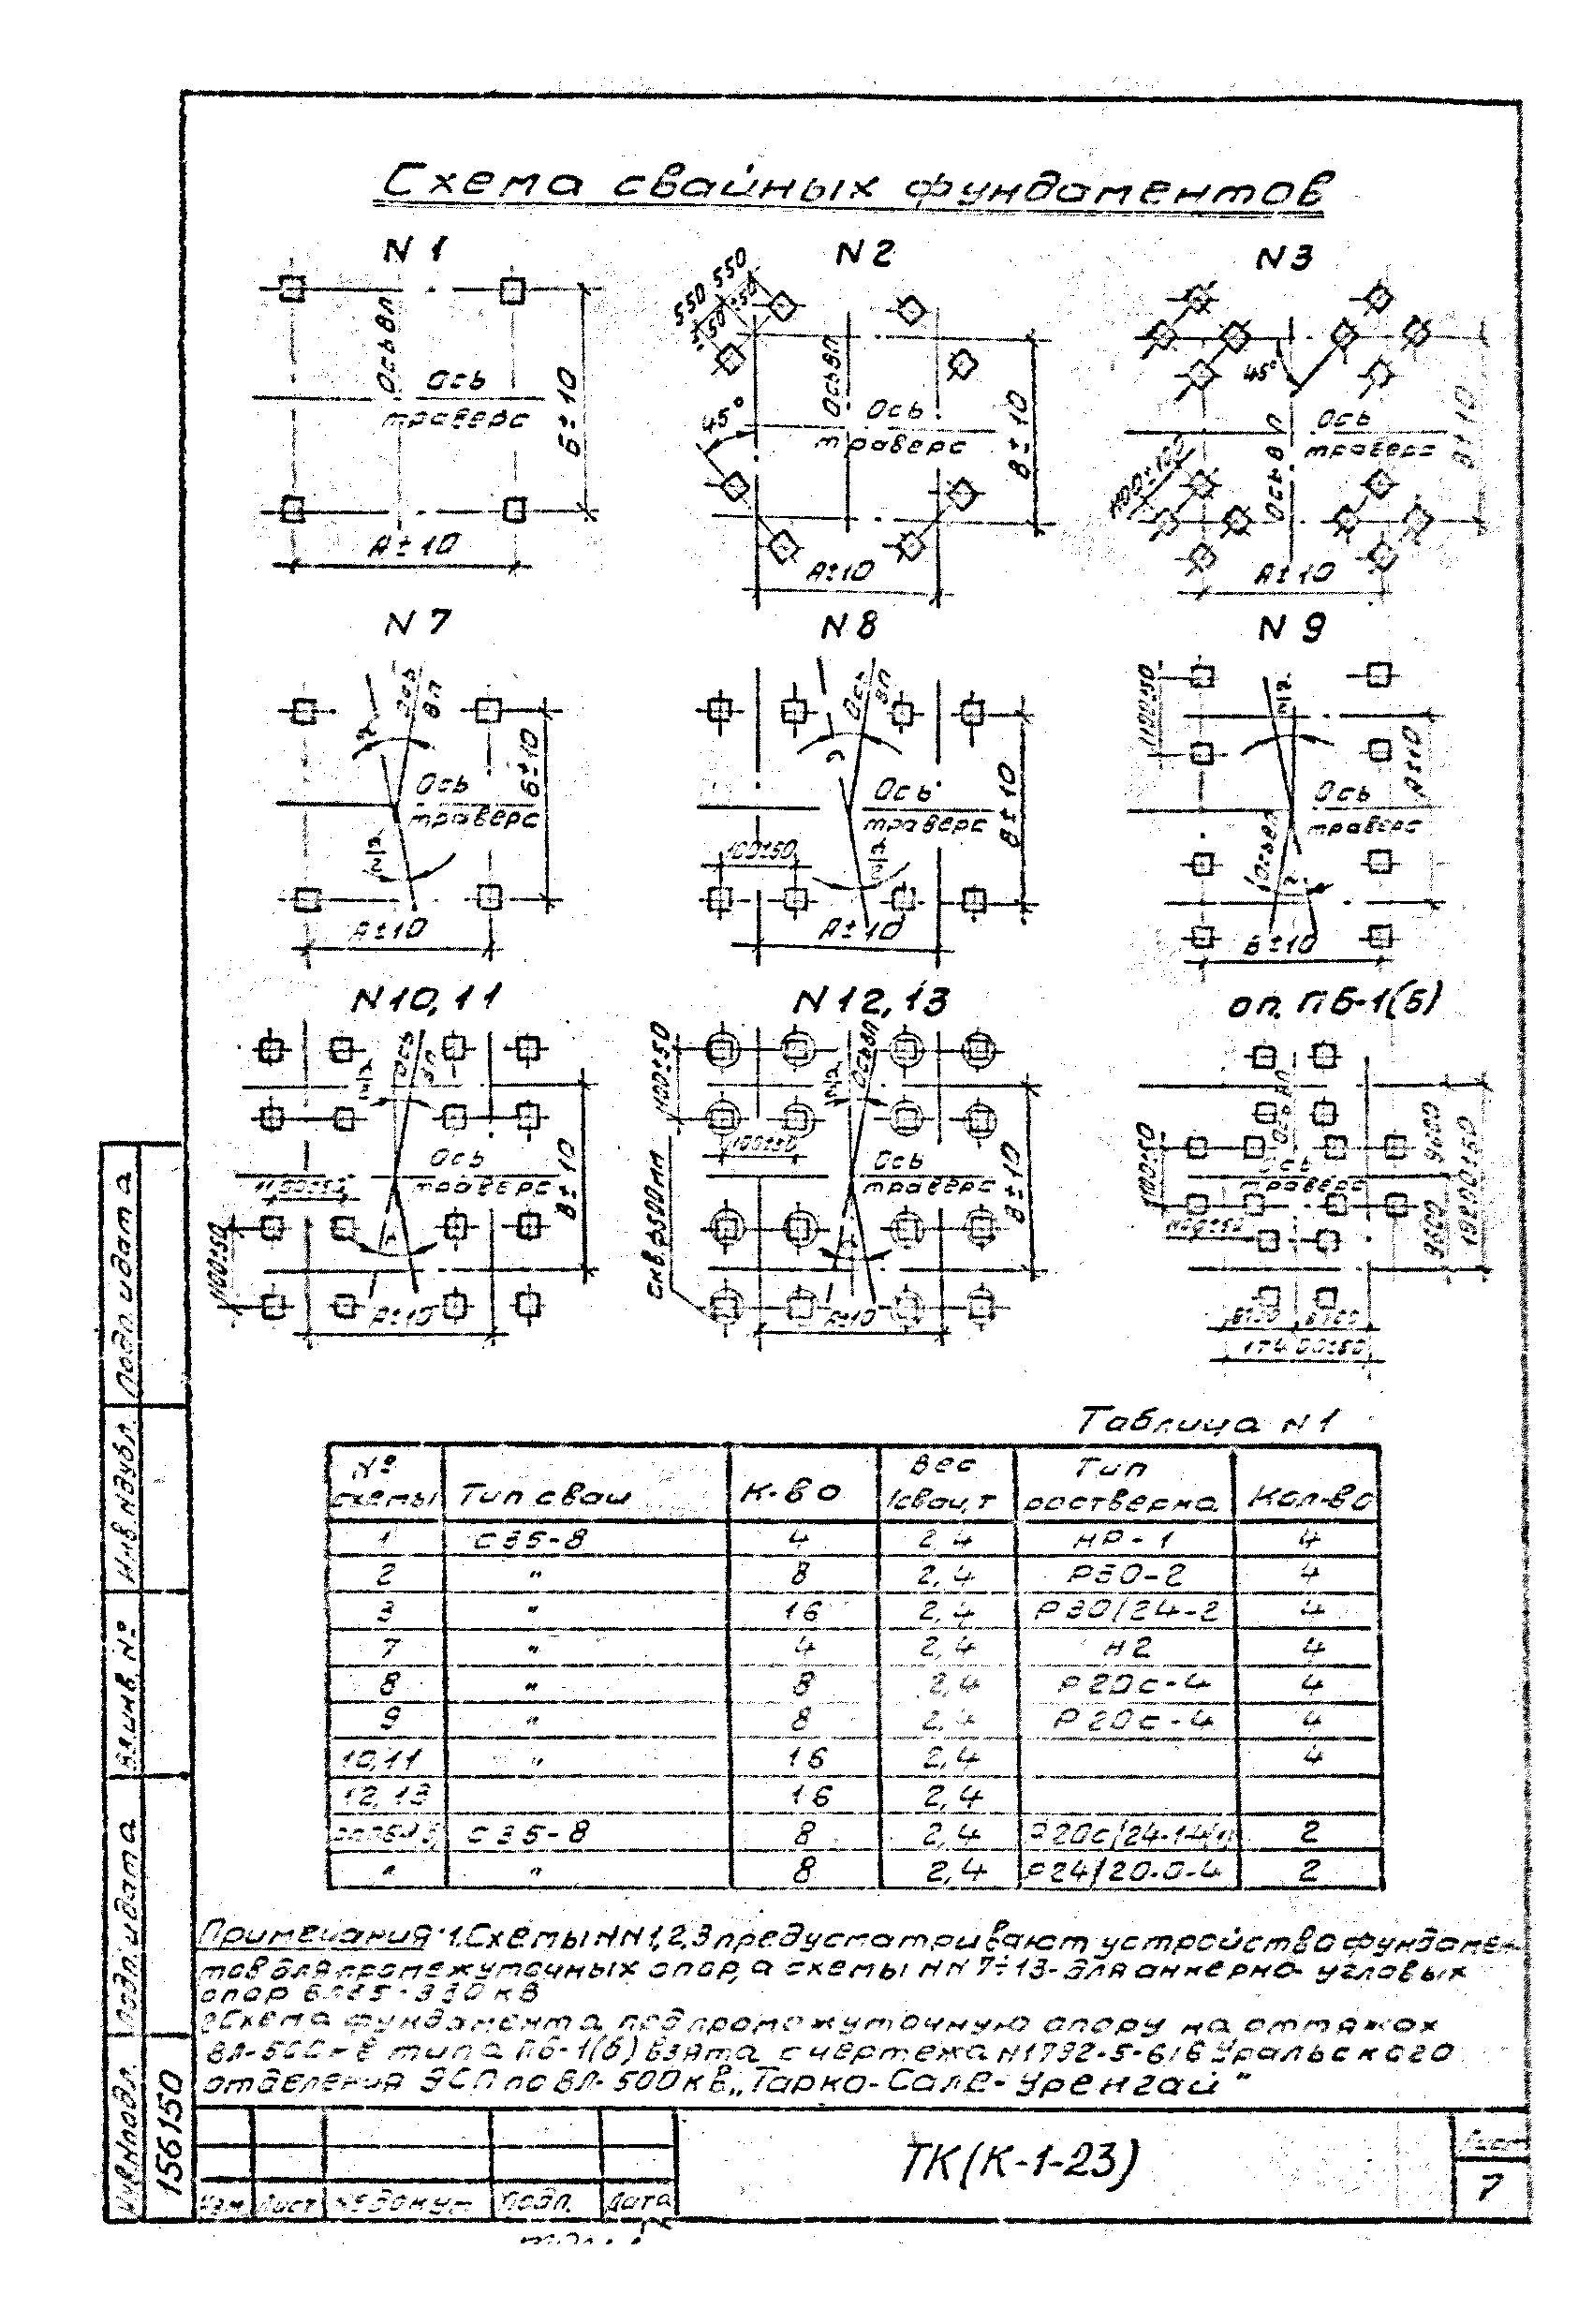 Схема свайных фундаментов
N 1
N 2
N 3
Ось ВЛ
Ось
траверс
Б±10
А±10
550 550
±50 ±50
45°
Ось ВЛ
Ось
траверс
В±10
А±10
45°
Ось ВЛ
Ось
траверс
В±10
1100±50
А±10
N 7
N 8
N 9
Ось
ВЛ
Ось
траверс
Б±10
А±10
Ось
ВЛ
Ось
траверс
1100±50
В±10
А±10
1100±50
Ось
траверс
Ось ВЛ
А±10
В±10
N10,11
N 12,13
оп. ПБ-1(5)
Ось
ВЛ
Ось
траверс
1100±50
1100±50
В±10
А±10
1100±50
Ось ВЛ
1100±50
Ось
траверс
скв. φ500мм
В±10
А±10
Ось ВЛ
1100±50
Ось
траверс
1100±50
9600
9600
19200±50
8700 8700
17400±50
Таблица N1
№ схемы Тип сваи К-во Вес 1сваи, т Тип ростверка Кол-во
1 С35-8 4 2,4 НР-1 4
2 " 8 2,4 Р30-2 4
3 " 16 2,4 Р30/24-2 4
7 " 4 2,4 Н2 4
8 " 8 2,4 Р20с-4 4
9 " 8 2,4 Р20с-4 4
10,11 " 16 2,4 4
12,13 16 2,4
С35-8 8 2,4 2
" " 8 2,4 Р24/20-0-4 2
Примечания: 1. Схемы NN1,2,3 предусматривают устройство фундамен-
тов для промежуточных опор, а схемы NN 7÷13-для анкерно-угловых
опор ВЛ35-330 кВ
2 Схема фундамента под промежуточную опору на оттяжках
ВЛ-500кВ типа ПБ-1(5) взята с чертежа Уральского
отделения ЭСП по ВЛ-500кВ „Тарко-Сале-Уренгай"
ТК(К-1-23)
Лист
7
Изм Лист № докум Подп. Дата
Инв.№подл. Подп. и дата Взамив № Инв.№дубл. Подп. и дата
156150